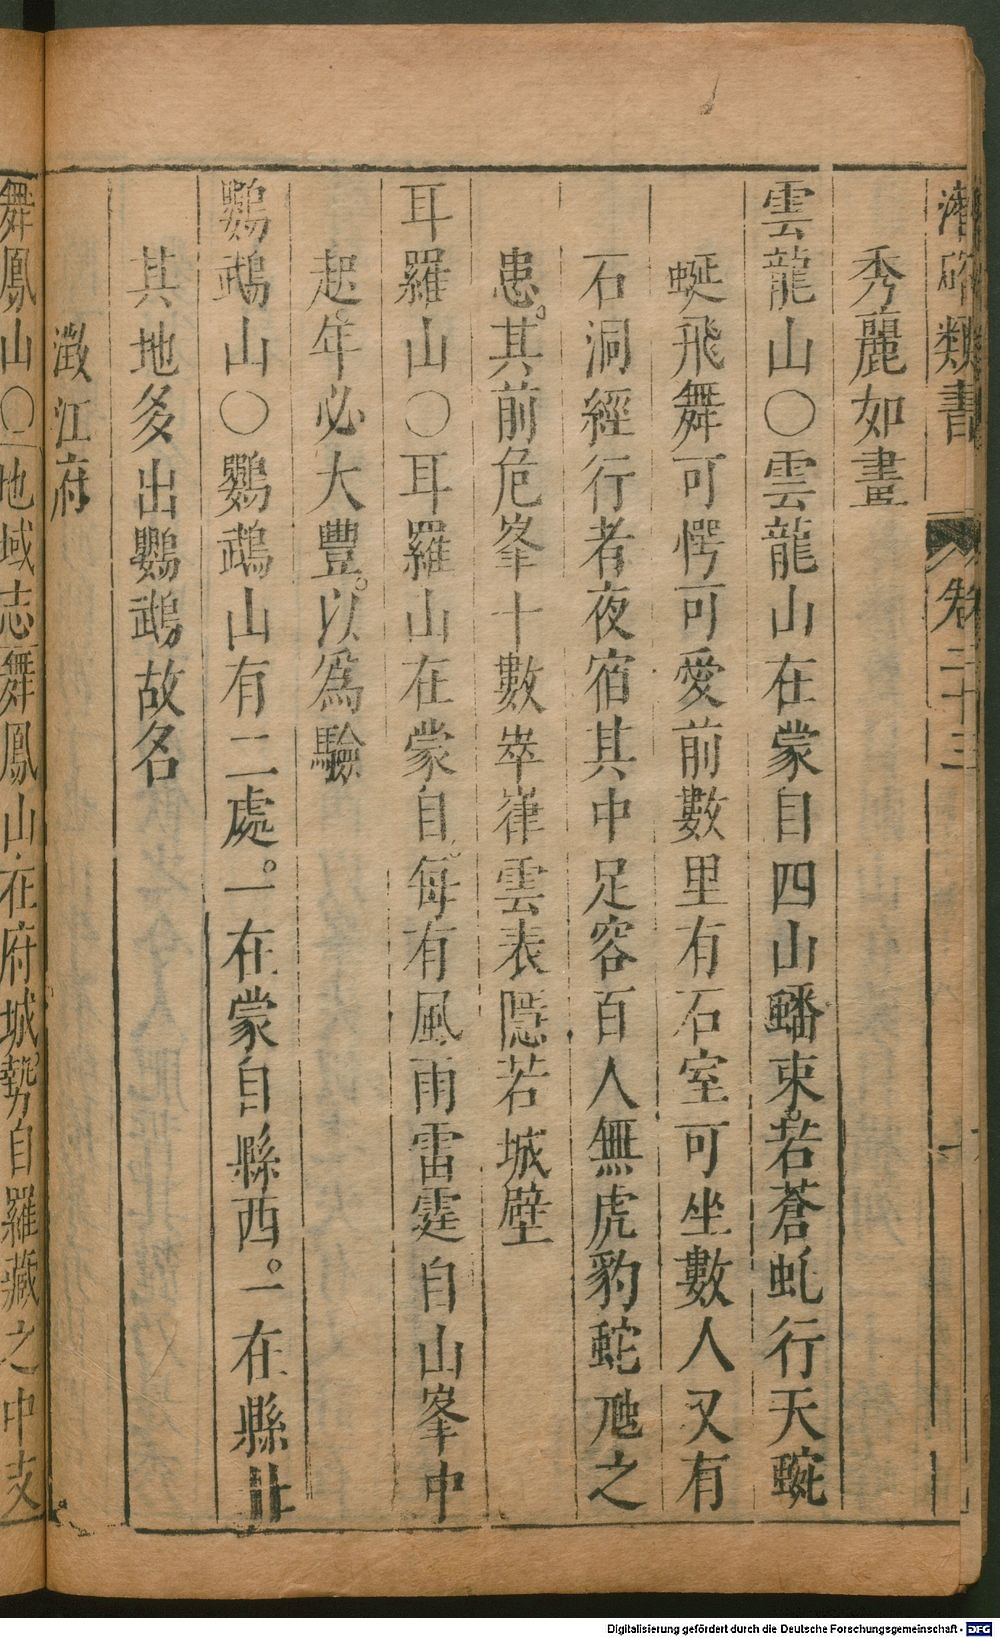 潛確類書 卷二十三
秀麗如畫
雲龍山〇雲龍山在蒙自四山蟠束若蒼虬行天蜿
蜒飛舞可愕可愛前數里有石室可坐數人又有
石洞經行者夜宿其中足容百人無虎豹蛇虺之
患其前危峯十數崒嵂雲表隱若城壁
耳羅山〇耳羅山在蒙自每有風雨雷霆自山峯中
起年必大豐以爲驗
鸚鵡山〇鸚鵡山有二處一在蒙自縣西一在縣北
其地多出鸚鵡故名
澂江府
舞鳳山〇地域志舞鳳山在府城勢自羅藏之中支
Digitalisierung gefördert durch die Deutsche Forschungsgemeinschaft - DFG